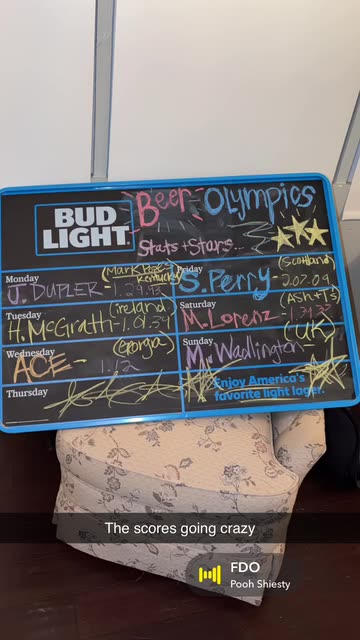 BUD
LIGHT.
Beer Olympics
Stats + Stars...
Monday
J. DUPLER - 1.29.93
Kentucky)
Friday
(Scotland)
S. Perry - 2.07.09
Tuesday
(ireland)
H. McGrath - 1.01.54
Saturday
(Ash + T's)
M. Lorenz - 1.31.35
Wednesday
(Georgia)
ACE - 1.12
Sunday
(UK)
M. Wadlington
Thursday
Enjoy America's
favorite light lager.
The scores going crazy
FDO
Pooh Shiesty